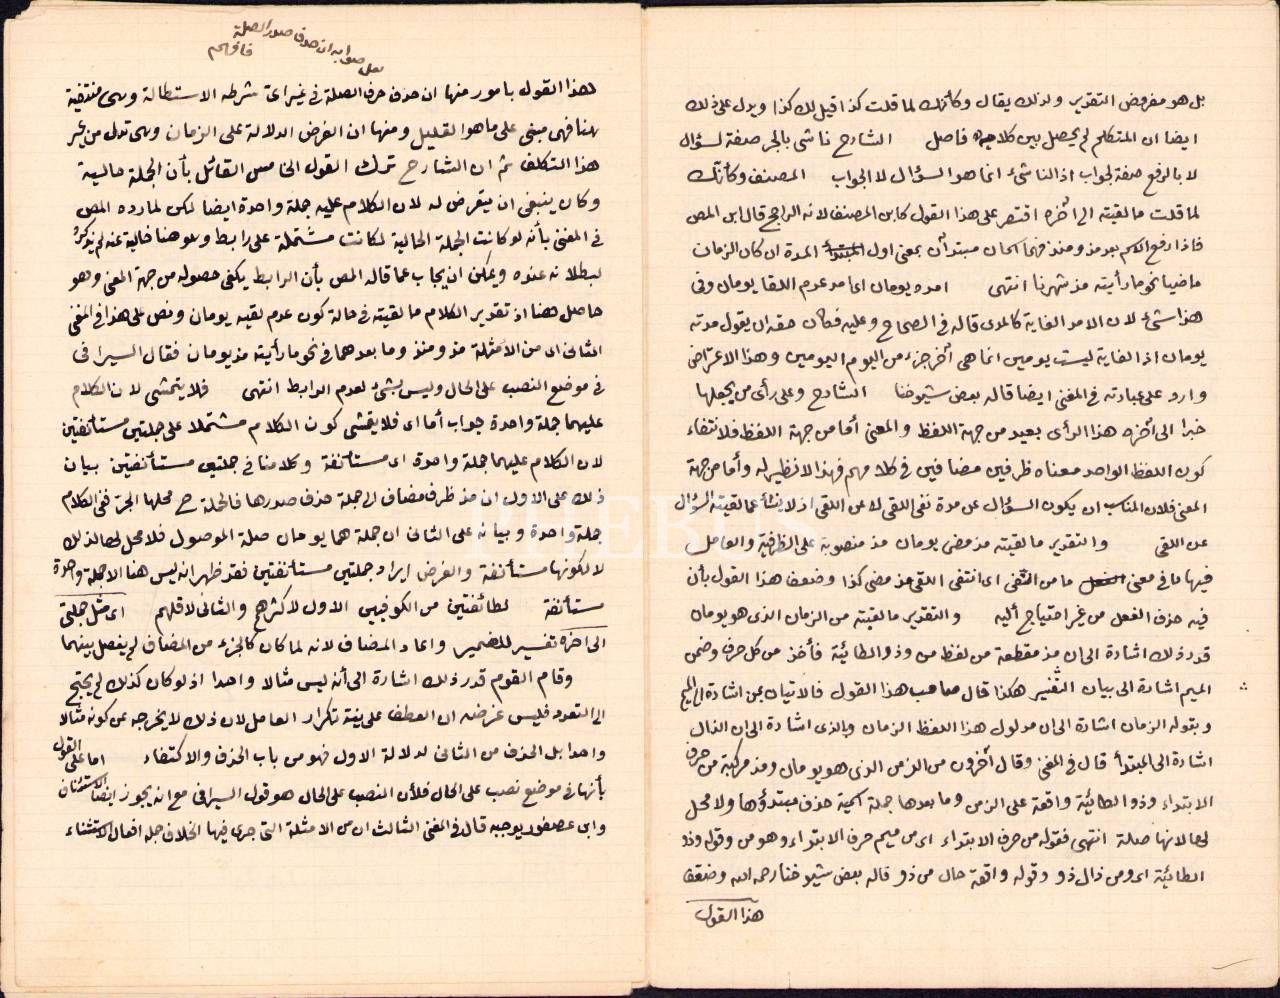 بل هو مفروض التقدير ولذلك يقال وكأنك لما قلت كذا قيل لك كذا ويدل على ذلك
ايضا ان المتكلم لم يحصل بين كلاميه فاصل الشارح ناشئ بالجر صفة لسؤال
لا بالرفع صفة لجواب اذ الناشئ انما هو السؤال لا الجواب المصنف وكأنك
لما قلت ما لقيته الى آخره اقتصر على هذا القول كابن المصنف لانه الراجح قال ابن المص
فاذا رفع الاسم بعد مذ ومنذ فهما اسمان مبتدآن بمعنى اول المدة ان كان الزمان
ماضيا نحو ما رأيته مذ شهرنا انتهى امده يومان اى امد عدم اللقا يومان وفى
هذا شئ لان الامد الغاية كالمدى قاله فى الصحاح وعليه فكان حقه ان يقول مدته
يومان اذ الغاية ليست يومين انما هى آخر جزء من اليوم اليومين وهذا الاعتراض
وارد على عبارته فى المغنى ايضا قاله بعض شيوخنا الشارح وعلى رأى من يجعلها
خبرا الى آخره هذا الرأى بعيد من جهة اللفظ والمعنى أما من جهة اللفظ فلانتفاء
كون اللفظ الواحد معناه ظرفين مضافين فى كلامهم فهذا لا نظير له وأما من جهة
المعنى فلان المناسب ان يكون السؤال عن مدة نفى اللقى لا عن اللقى اذ لا ينشأ عما لقيته السؤال
عن اللقى والتقدير ما لقيته مذ مضى يومان مذ منصوبة على الظرفية والعامل
فيها ما فى معنى ما من النفى اى انتفى اللقى مذ مضى كذا وضعف هذا القول بأن
فيه حذف الفعل من غير احتياج أليه والتقدير ما لقيته من الزمان الذى هو يومان
قدر ذلك اشارة الى ان مذ مقطعة من لفظ من وذو الطائية فأخذ من كل حرف وضمن
الميم اشارة الى بيان التغيير هكذا قال صاحب هذا القول فالاتيان بمن اشارة الى الميم
وبقوله الزمان اشارة الى ان مدلول هذا اللفظ الزمان وبالذى اشارة الى ان الذال
اشارة الى المبتدأ قال فى المغنى وقال آخرون من الزمن الذى هو يومان ومنذ مركبة من حرف
الابتداء وذو الطائية واقعة على الزمن وما بعدها جملة اسمية حذف مبتدؤها ولا محل
لها لانها صلة انتهى فقوله من حرف الابتداء اى من ميم حرف الابتداء وهو من وقوله وذو
الطائية اى ومن ذال ذو وقوله واقعة حال من ذو قاله بعض شيوخنا رحمه الله وضعف
هذا القول
لعل صوابه ان حذف صدر الصلة
فافهم
هذا القول بامور منها ان حذف حرف الصلة فى غير اى شرطه الاستطالة وهى منتفية
هنا فهى مبنى على ما هو القليل ومنها ان الغرض الدلالة على الزمان وهى تدل من غير
هذا التكلف ثم ان الشارح ترك القول الخامس القائل بأن الجملة حالية
وكان ينبغى ان يتعرض له لان الكلام عليه جملة واحدة ايضا لكن لما رده المص
فى المغنى بأنه لو كانت الجملة الحالية لكانت مشتملة على رابط وهو هنا خالية عنه لم يذكره
لبطلانه عنده ويمكن ان يجاب عما قاله المص بأن الرابط يكفى حصوله من جهة المعنى وهو
حاصل هنا اذ تقدير الكلام ما لقيته فى حالة كون عدم لقيه يومان ونص على هذا فى المغنى
الثانى اى من الأمثلة مذ ومنذ وما بعدهما فى نحو ما رأيته مذ يومان فقال السيرافى
فى موضع النصب على الحال وليس بشئ لعدم الرابط انتهى فلا يتمشى لان الكلام
عليهما جملة واحدة جواب أما اى فلا يتمشى كون الكلام مشتملا على جملتين مستأنفتين
لان الكلام عليهما جملة واحدة اى مستأنفة وكلامنا فى جملتين مستأنفتين بيان
ذلك على الاول ان مذ ظرف مضاف الى جملة حذف صدرها فالجملة ح محلها الجر ففى الكلام
جملة واحدة وبيانه على الثانى ان جملة هما يومان صلة الموصول فلا محل لها لذلك
لا لكونها مستأنفة والغرض ايراد جملتين مستأنفتين فقد ظهر انه ليس هنا الا جملة واحدة
مستأنفة لطائفتين من الكوفيين الاول لاكثرهم والثانى لاقلهم اى مثل جملتى
الى اخره تفسير للضمير واعاد المضاف لانه لما كان كالجزء من المضاف لم يفصل بينهما
وقام القوم قدر ذلك اشارة الى أنه ليس مثالا واحدا اذ لو كان كذلك لم يحتج
الى التعدد فليس غرضه ان العطف على نية تكرار العامل لان ذلك لا يخرجه عن كونه مثالا
واحدا بل الحذف من الثانى لدلالة الاول فهو من باب الحذف والاكتفاء اما على القول
بأنها فى موضع نصب على الحال فلأن النصب على الحال هو قول السيرافى مع انه يجوز ايضا الاستئناف
وابن عصفور يوجبه قال فى المغنى الثالث اى من الامثلة التى جرى فيها الخلاف جملة افعال الاستثناء